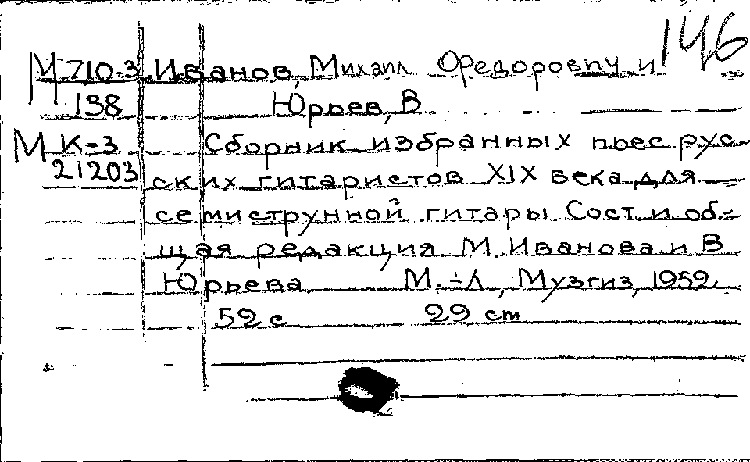 146
М 710-3 Иванов, Михаил Федорович и
138 Юрьев, В
М К-3 Сборник избранных пьес рус-
21203 ских гитаристов XIX века для
семиструнной гитары Сост. и об-
щая редакция М. Иванова и В
Юрьева М.-Л., Музгиз, 1959.
52 с 29 cm